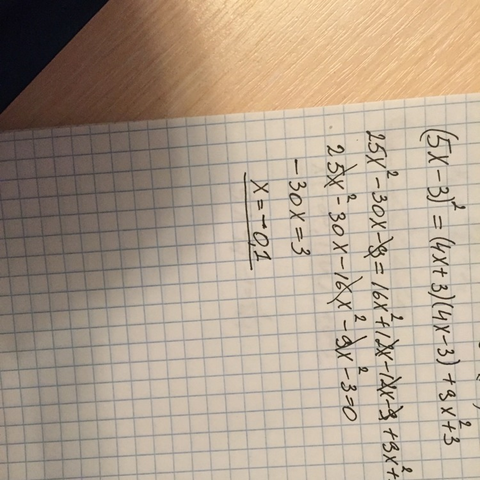 (5x-3)² = (4x+3)(4x-3)+9x²+3
25x²-30x-9 = 16x²+12x-12x-9+9x²+
25x²-30x-16x²-9x²-3=0
-30x=3
x=-0,1